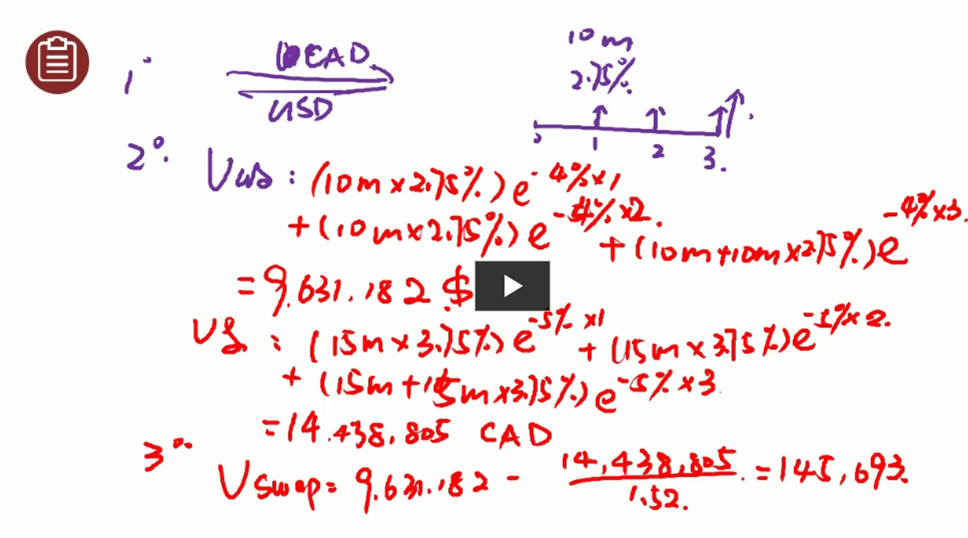 1° CAD
USD
10m
2.75%
0 1 2 3.
2°. V US : (10m×2.75%)e^-4%×1
+(10m×2.75%)e^-4%×2. +(10m+10m×2.75%)e^-4%×3.
=9.631.182 $
: (15m×3.75%)e^-5%×1 +(15m×3.75%)e^-5%×2.
+(15m+15m×3.75%)e^-5%×3
=14.438.805 CAD
3° V swap= 9.631.182 - 14,438,805 / 1.52. =145,693.